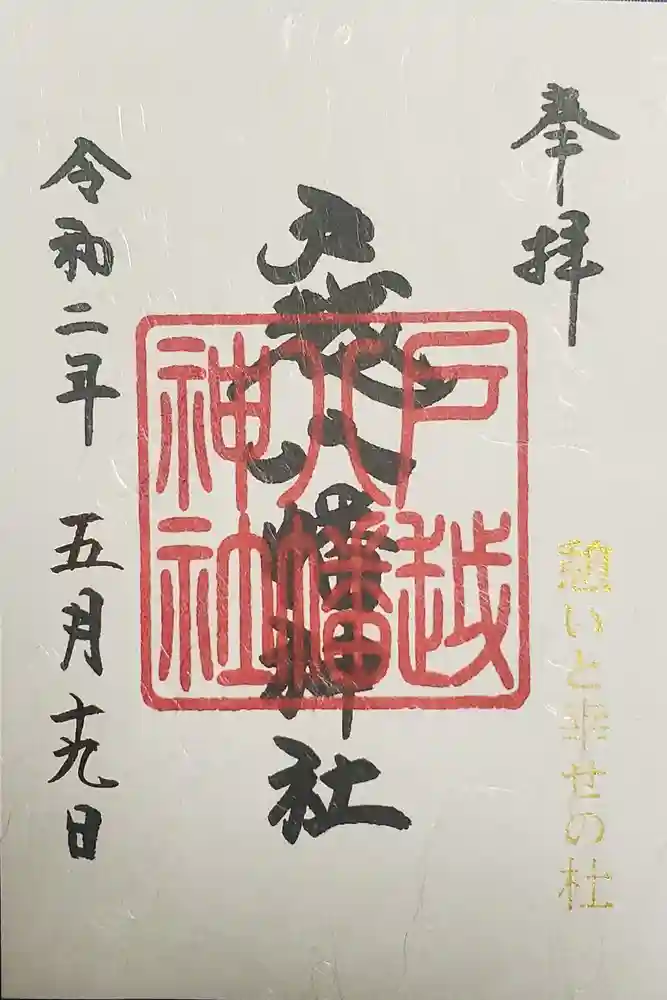 奉拝
憩いと幸せの杜
戸越八幡神社
戸越
八幡
神社
令和二年 五月十九日